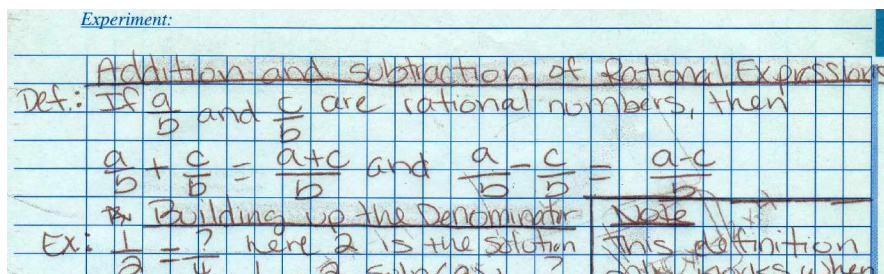 Experiment:
Addition and subtraction of Rational Expressions
Def.: If a/b and c/b are rational numbers, then
a/b + c/b = a+c/b and a/b - c/b = a-c/b
Building up the Denominator Note
Ex: 1/2 = ?/4 here 2 is the solution This definition